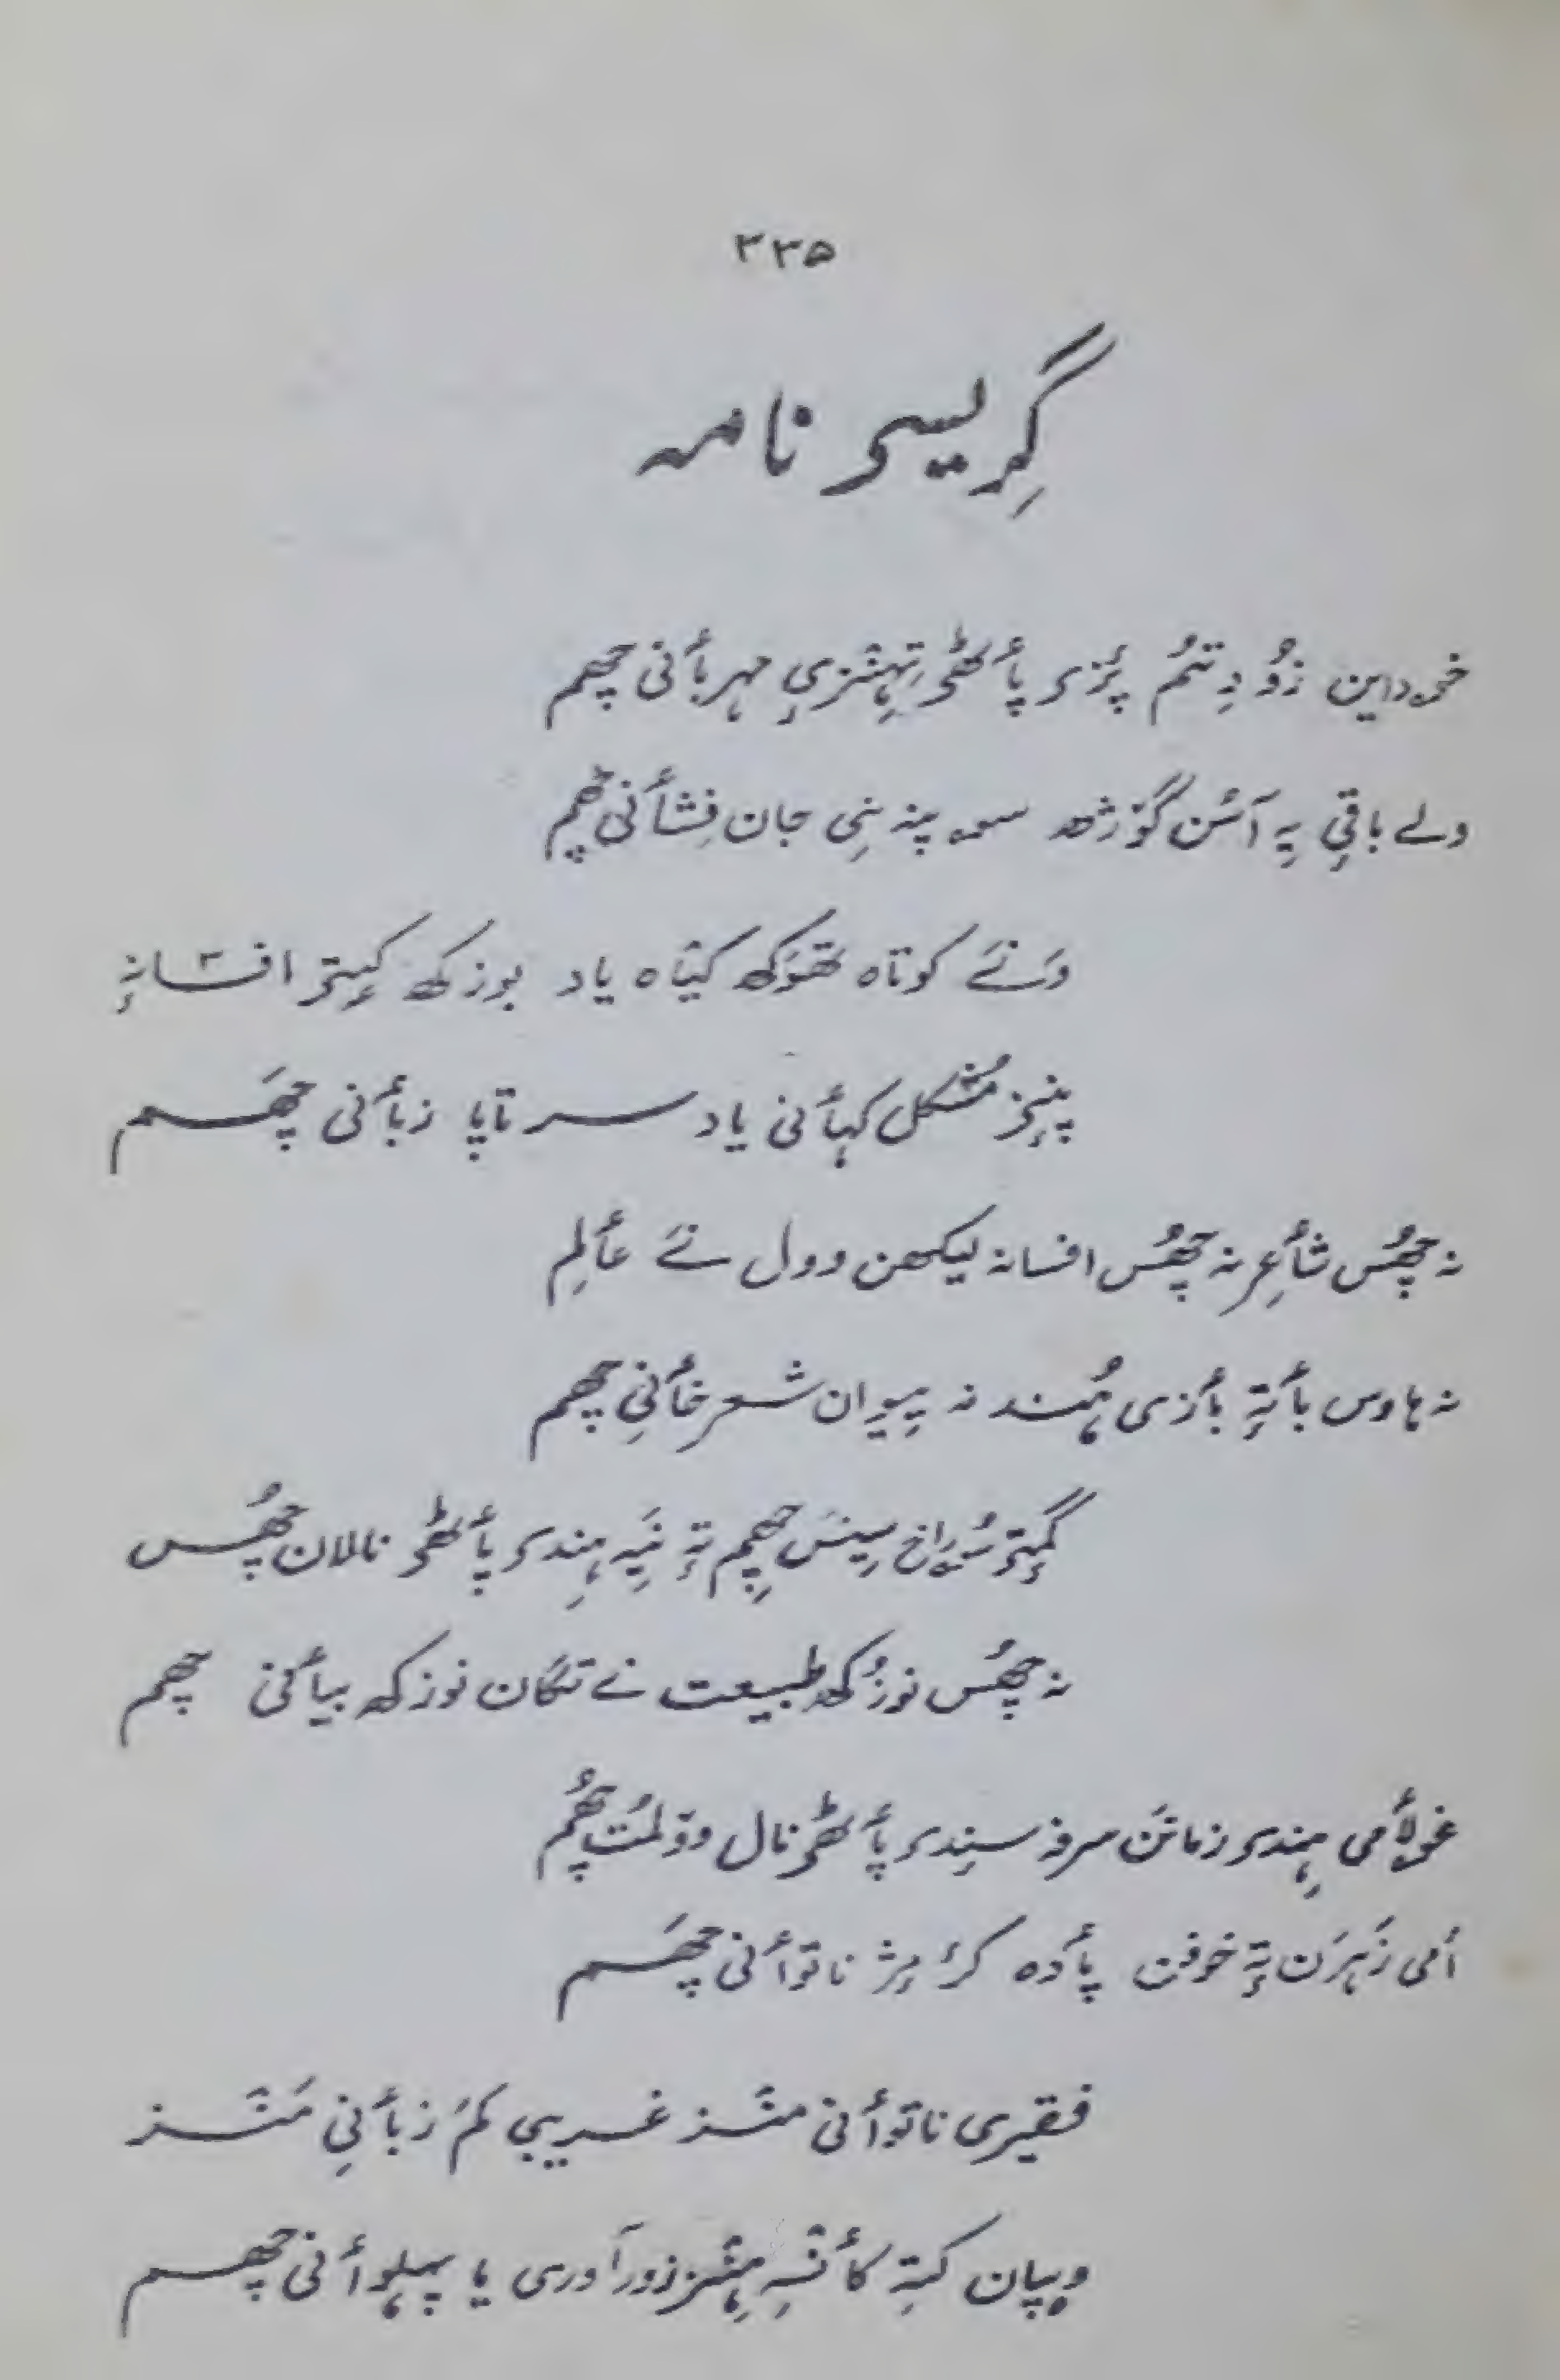 ۳۳۵
گرٟیسۍ نامہ
خۄداین زُو دِتنُم پٔزۍ پٲٹھۍ تِہٕنٛزٕے مہربٲنی چھم
ولے باقٕے یہِ آسُن گوٚژھ سۄ پننِی جان فِشٲنی چھم
وَنَے کوتاہ تھوَکھ کیٛاہ یاد بوزکھ کٟتۍ افسانہٕ
پنٕنۍ مُشکل کہٲنی یاد سر تاپا زبٲنی چھَم
نہ چھُس شٲعِر نہ چھُس افسانہ لیکھن وول نَے عٲلِم
نہ ہاوس بٲتہٕ بٲزی ہُند نہ پیوان شعر خٲنی چھم
گٔمٕتۍ سۄراخ سینَس چھِم تہٕ نَیہِ ہِنٛدۍ پٲٹھۍ نالان چھُس
نہ چھُس نوزُکھ طبیعت نے تگان نوزکھ بیٲنی چھم
غولٲمی ہِنٛدۍ زمانَن سرفہ سٕنٛدۍ پٲٹھۍ نال وولمُت چھُم
أمی زَہرَن تہٕ خوفن پٲدہ کرٕ مژ ناتوٲنی چھَم
فقیری ناتوٲنی منٛز غریبی کَم زبٲنی مَنٛز
وۄپان کتہِ کٲنٛسہِ ہِنٛز زورآوری یا پہلوٲنی چھم